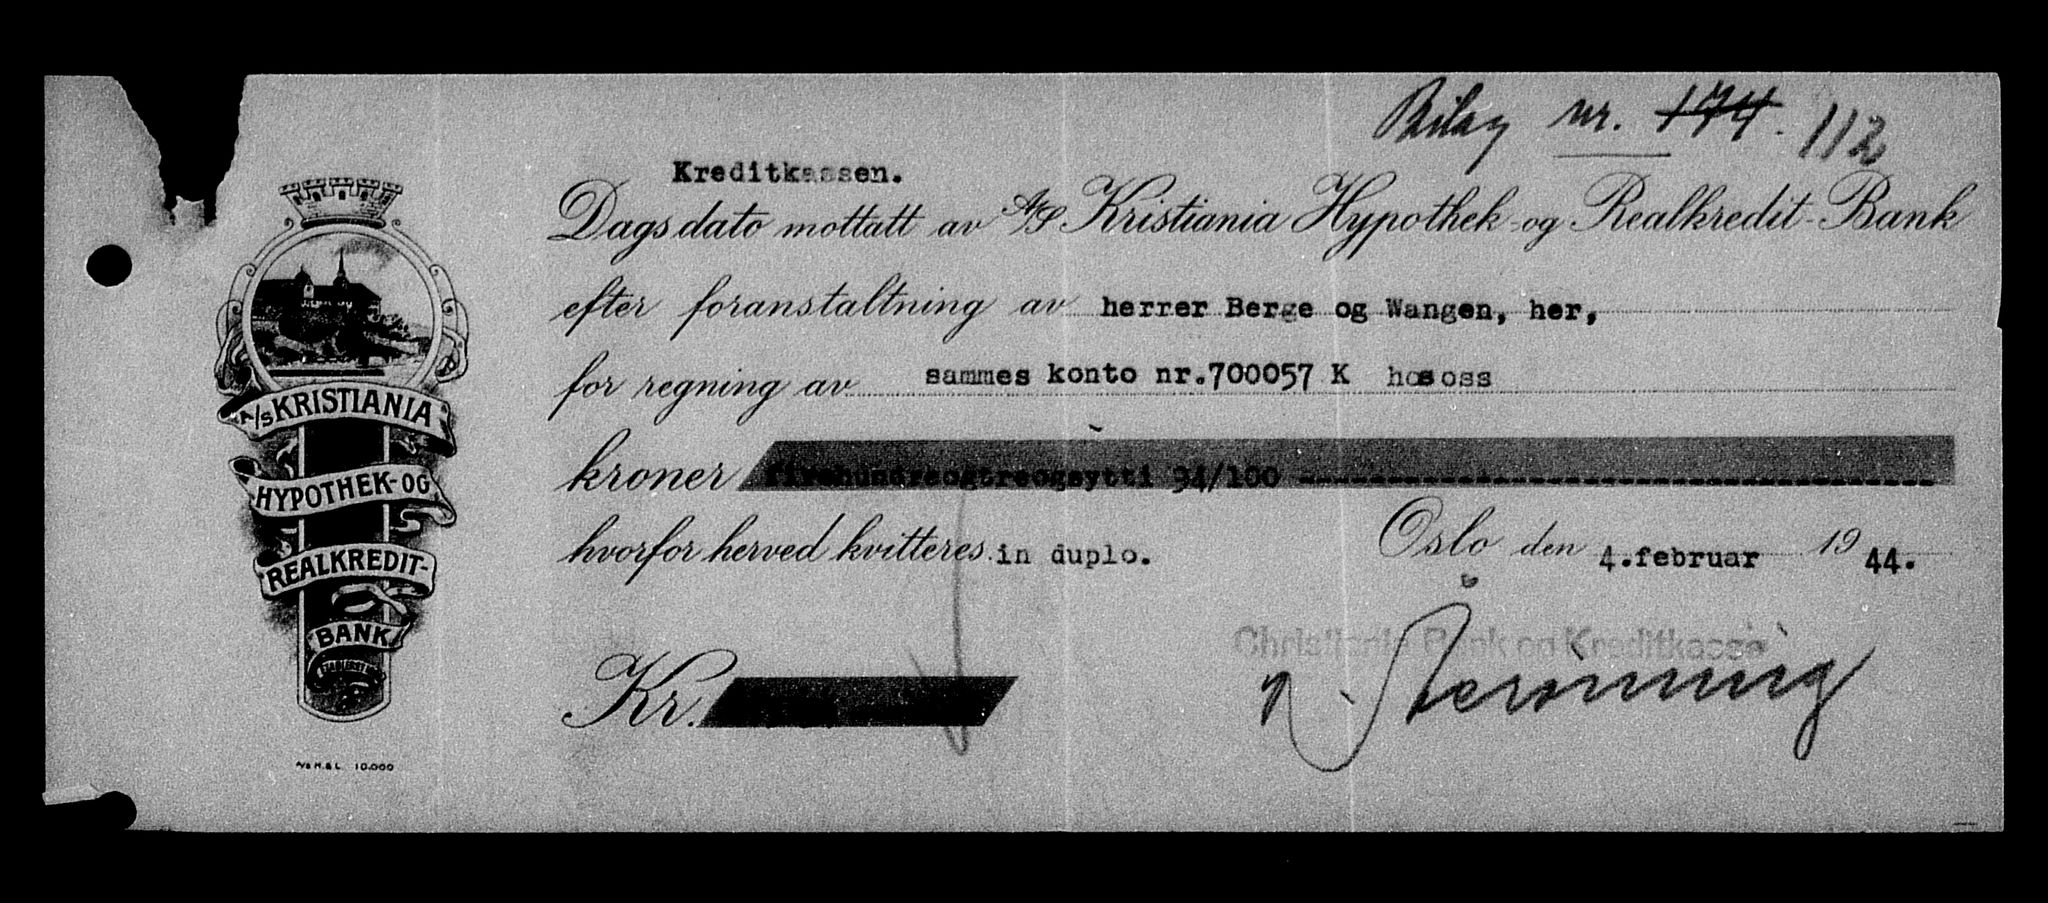 Bilag nr. 174. 112
Kreditkassen.
Dags dato mottatt av A/S Kristiania Hypothek- og Realkredit-Bank
efter foranstaltning av herrer Berge og Wangen, her,
for regning av sammes konto nr.700057 K hos oss
kroner firehundreogtreogsytti 94/100
hvorfor herved kvitteres in duplo. Oslo den 4.februar 1944.
Christiania Bank og Kreditkasse
Kr.
A/S KRISTIANIA
HYPOTHEK- OG
REALKREDIT-
BANK
A/S M.&L. 10.000